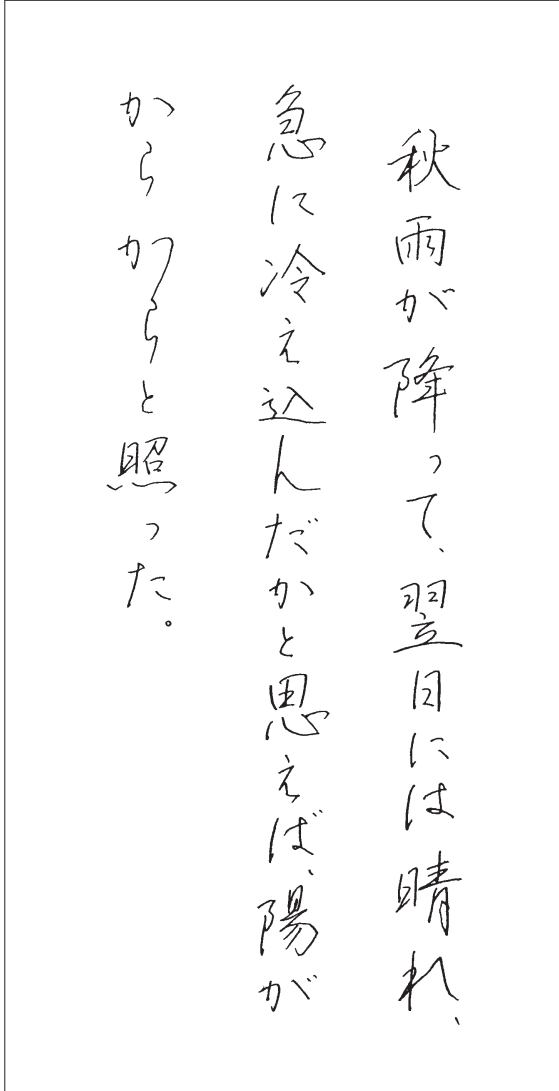 秋雨が降って、翌日には晴れ、
急に冷え込んだかと思えば、陽が
からからと照った。